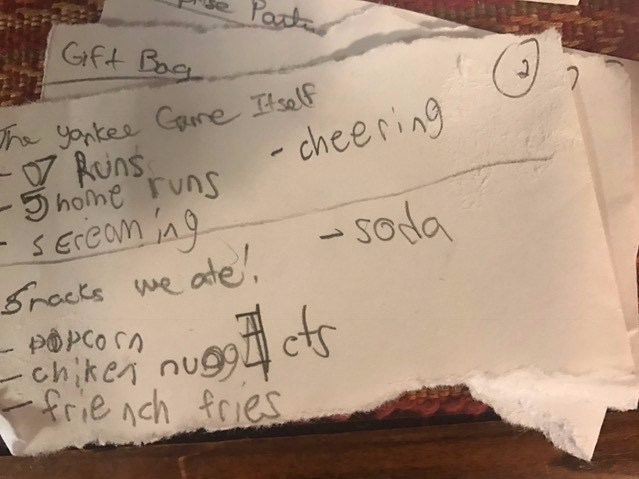 Part
Gift Bag
2
The Yankee Game Itself
- 7 Runs - cheering
- 5 home runs
- screaming
Snacks we ate! - soda
- popcorn
- chiken nuggcts
- friench fries